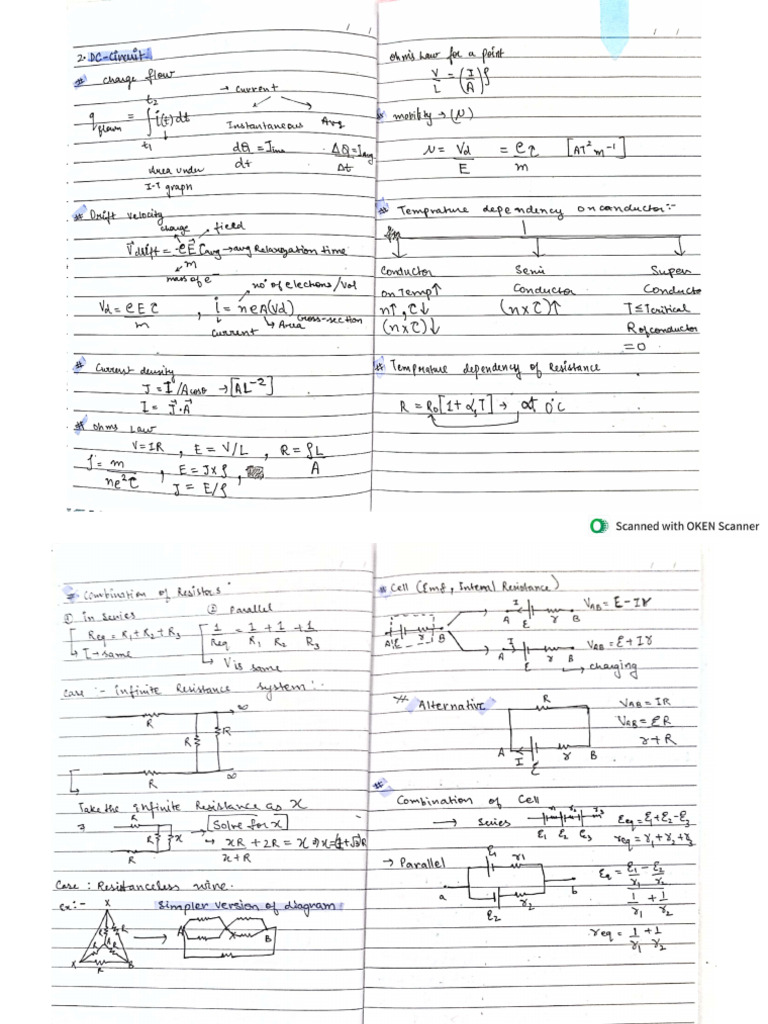 2. DC-Circuit
# Charge flow
q flown = ∫ i(t) dt
t2
t1
area under
I-T graph
→ Current
Instantaneous Avg
dQ/dt = I ΔQ/Δt = I avg
# Drift velocity
charge field
V drift = -eE τavg → avg Relaxation time
m
mass of e⁻
no° of electrons/vol
Vd = eEτ/m , i = neA(Vd)
current → Area cross-section
# Current density
J = I/A cosθ → [AL⁻²]
I = J⃗.A⃗
# Ohms Law
V=IR , E = V/L , R = ρL/A
ρ = m/ne²τ , E = J×ρ ,
J = E/ρ
ohm's Law for a point
V/L = (I/A)ρ
# mobility → (μ)
μ = Vd/E = eτ/m [AT²m⁻¹]
# Temprature dependency on conductor:-
Conductor Semi Super
on Temp↑ Conductor Conducto
n↑, τ↓ (n×τ)↑ T≤Tcritical
(n×τ)↓ R of conductor
=0
# Temprature dependency of Resistance
R = R₀[1+αT] → at 0°C
Scanned with OKEN Scanner
= Combination of Resistors
① In series ② Parallel
Req = R1+R2+R3 1/Req = 1/R1 + 1/R2 + 1/R3
↳ I → same ↳ V is same
Case :- infinite Resistance system:-
∞
R
R R
R
∞
Take the infinite Resistance as x
R
R x
R
→ Solve for x
↳ xR/x+R + 2R = x ⇒ x=(1+√3)R
Case : Resistanceless wire.
Ex:- Simpler version of diagram
X
R R R
A
X R B
A X B
# Cell (Emf, Internal Resistance)
A E r B
I
A E r B
VAB = E-Ir
I
A E r B
VAB = E+Ir
↳ charging
# Alternative
R
A I E r B
VAB = IR
VAB = ER
r+R
# Combination of Cell
→ Series
r1 r2 r3
E1 E2 E3
Eeq = E1+E2-E3
req = r1+r2+r3
→ Parallel
E1 r1
a b
E2 r2
Eq = E1/r1 - E2/r2
1/r1 + 1/r2
req = 1/r1 + 1/r2